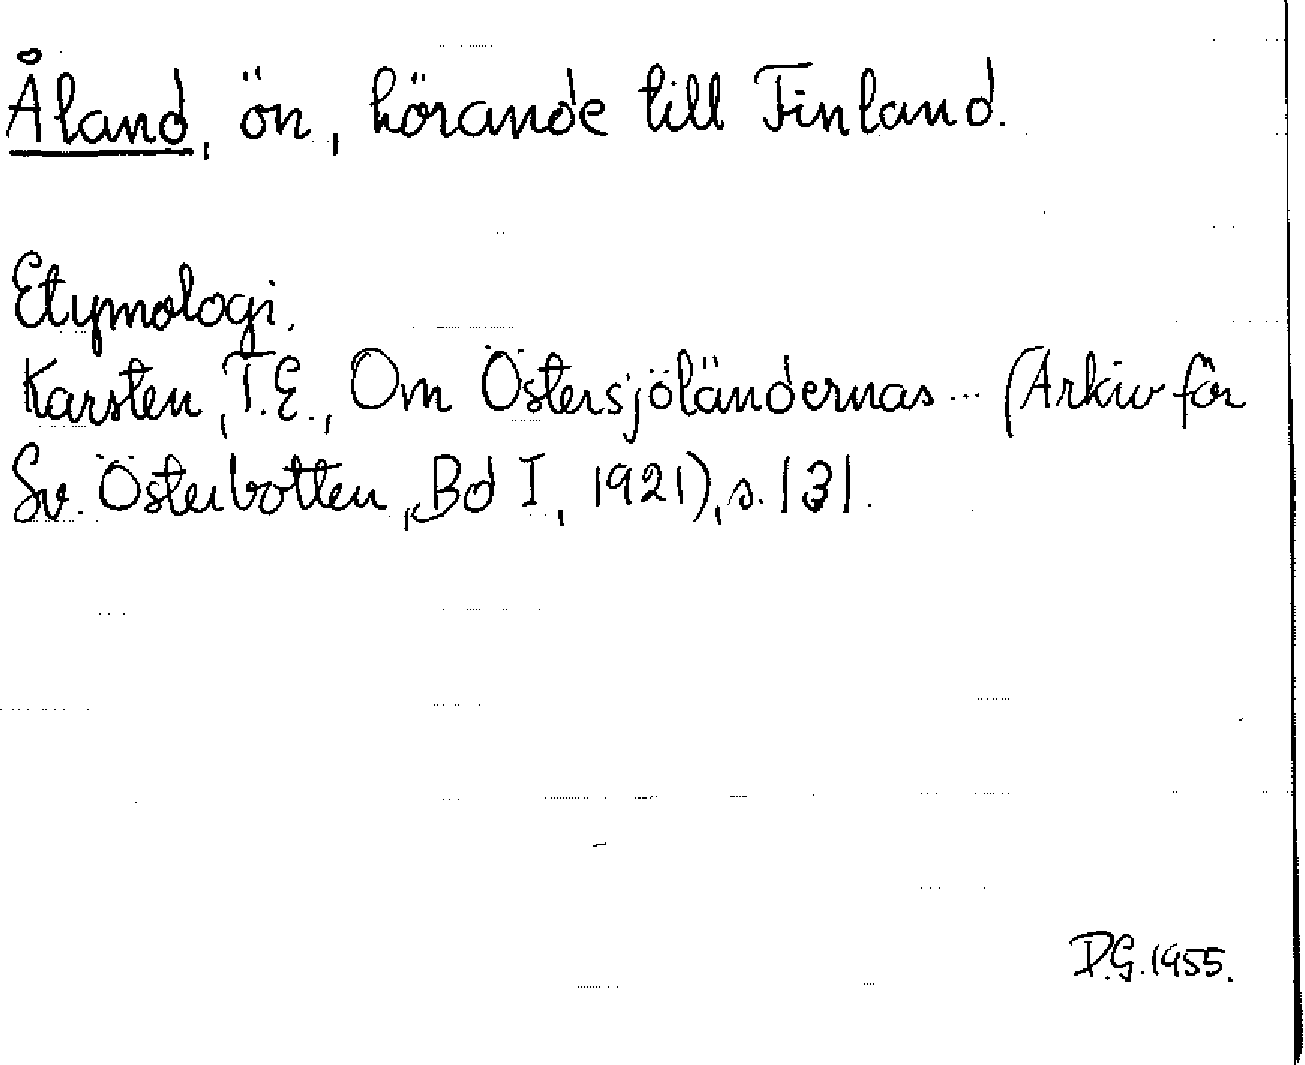 Åland, ön, hörande till Finland.
Etymologi.
Karsten, T.E., Om Östersjöländernas ... (Arkiv för
Sv. Österbotten, Bd I, 1921), s. 131.
D.G. 1955.